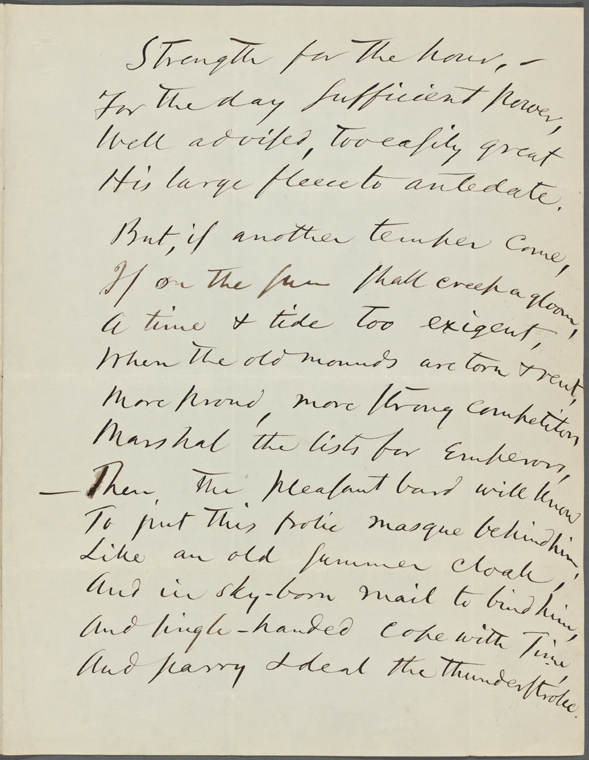 Strength for the hour, –
For the day sufficient power,
Well advised, too easily great
His large fleece to antedate.
But, if another temper come,
If on the sun shall creep a gloom,
A time & tide too exigent,
When the old mounds are torn & rent,
More proud, more strong competitors
Marshal the lists for Emperors,
— Then, the pleasant bard will know
To put this frolic masque behind him,
Like an old summer cloak,
And in sky-born mail to bind him,
And single-handed cope with Time,
And parry & deal the thunderstroke.